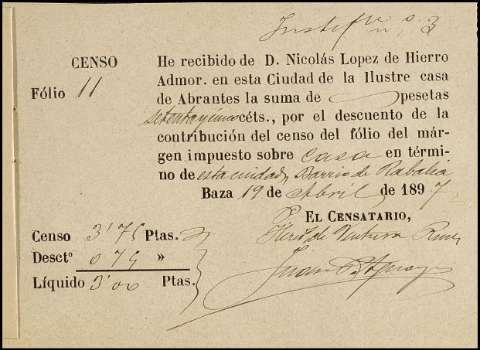 Justif n.º 3
CENSO
Fólio 11
He recibido de D. Nicolás Lopez de Hierro
Admor. en esta Ciudad de la Ilustre casa
de Abrantes la suma de pesetas
setenta y cinco céts., por el descuento de la
contribución del censo del fólio del már-
gen impuesto sobre casa en térmi-
no de esta ciudad, Barrio de Rabalia
Baza 19 de Abril de 1897
EL CENSATARIO,
P.
de Ventura
Juan
Censo 3'75 Ptas.
Desct° 0'75 »
Líquido 3'00 Ptas.